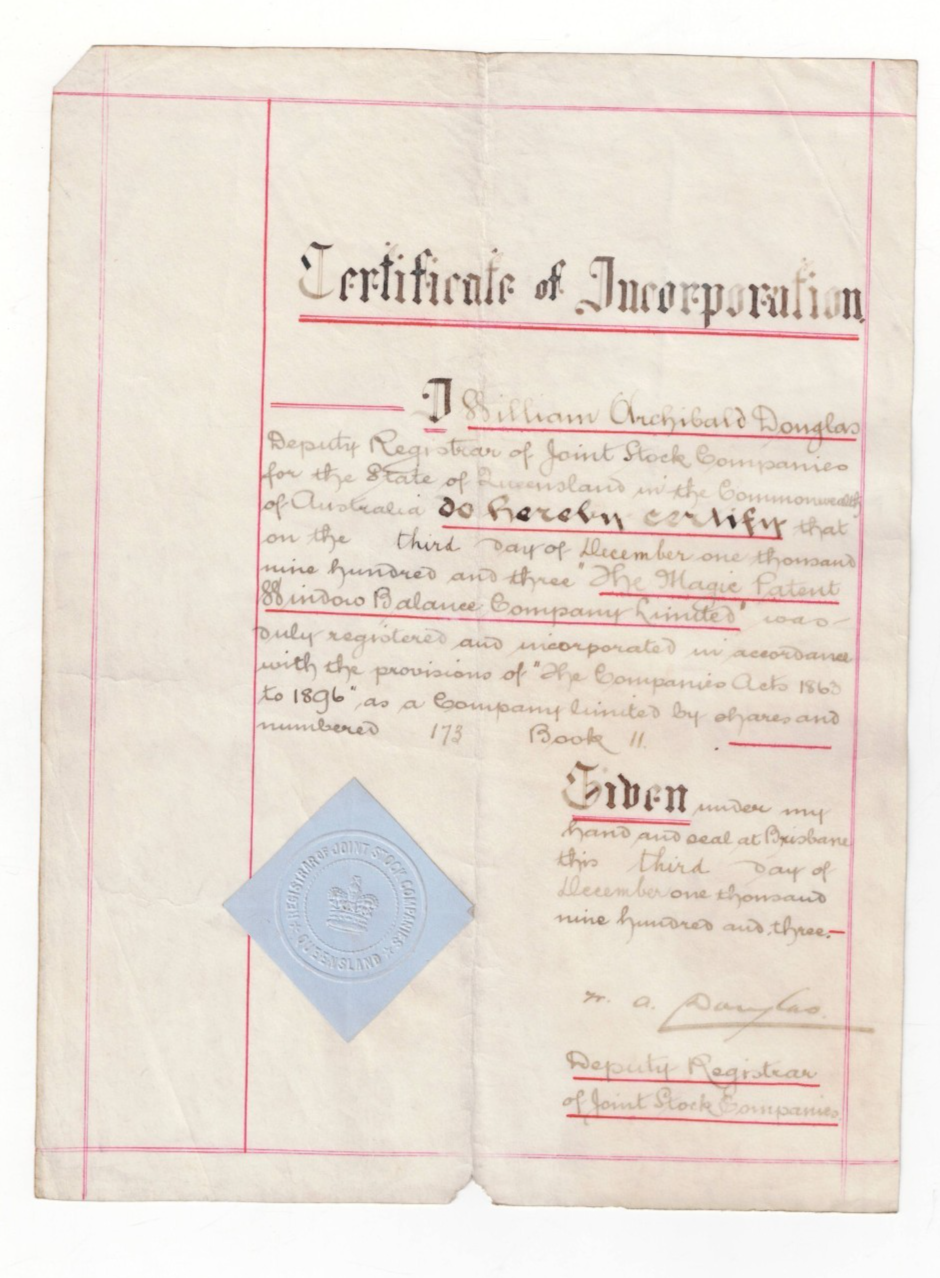 Certificate of Incorporation.
I William Archibald Douglas
Deputy Registrar of Joint Stock Companies
for the State of Queensland in the Commonwealth
of Australia do hereby certify that
on the third day of December one thousand
nine hundred and three "The Magic Patent
Window Balance Company Limited" was
duly registered and incorporated in accordance
with the provisions of "The Companies Acts 1863
to 1896", as a Company limited by shares and
numbered 173 Book 11.
Given under my
hand and seal at Brisbane
this third day of
December one thousand
nine hundred and three.
W. A. Douglas.
Deputy Registrar
of Joint Stock Companies.
REGISTRAR OF JOINT STOCK COMPANIES
QUEENSLAND